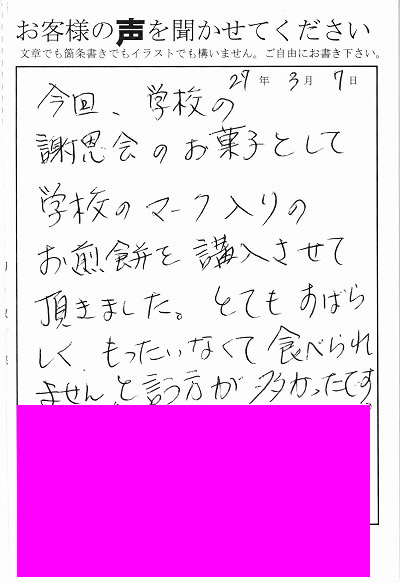 お客様の声を聞かせてください
文章でも箇条書きでもイラストでも構いません。ご自由にお書き下さい。
27年 3月 7日
今回、学校の
謝恩会のお菓子として
学校のマーク入りの
お煎餅を講入させて
頂きました。とてもすばら
しく、もったいなくて食べられ
ませんと言う方が多かったです